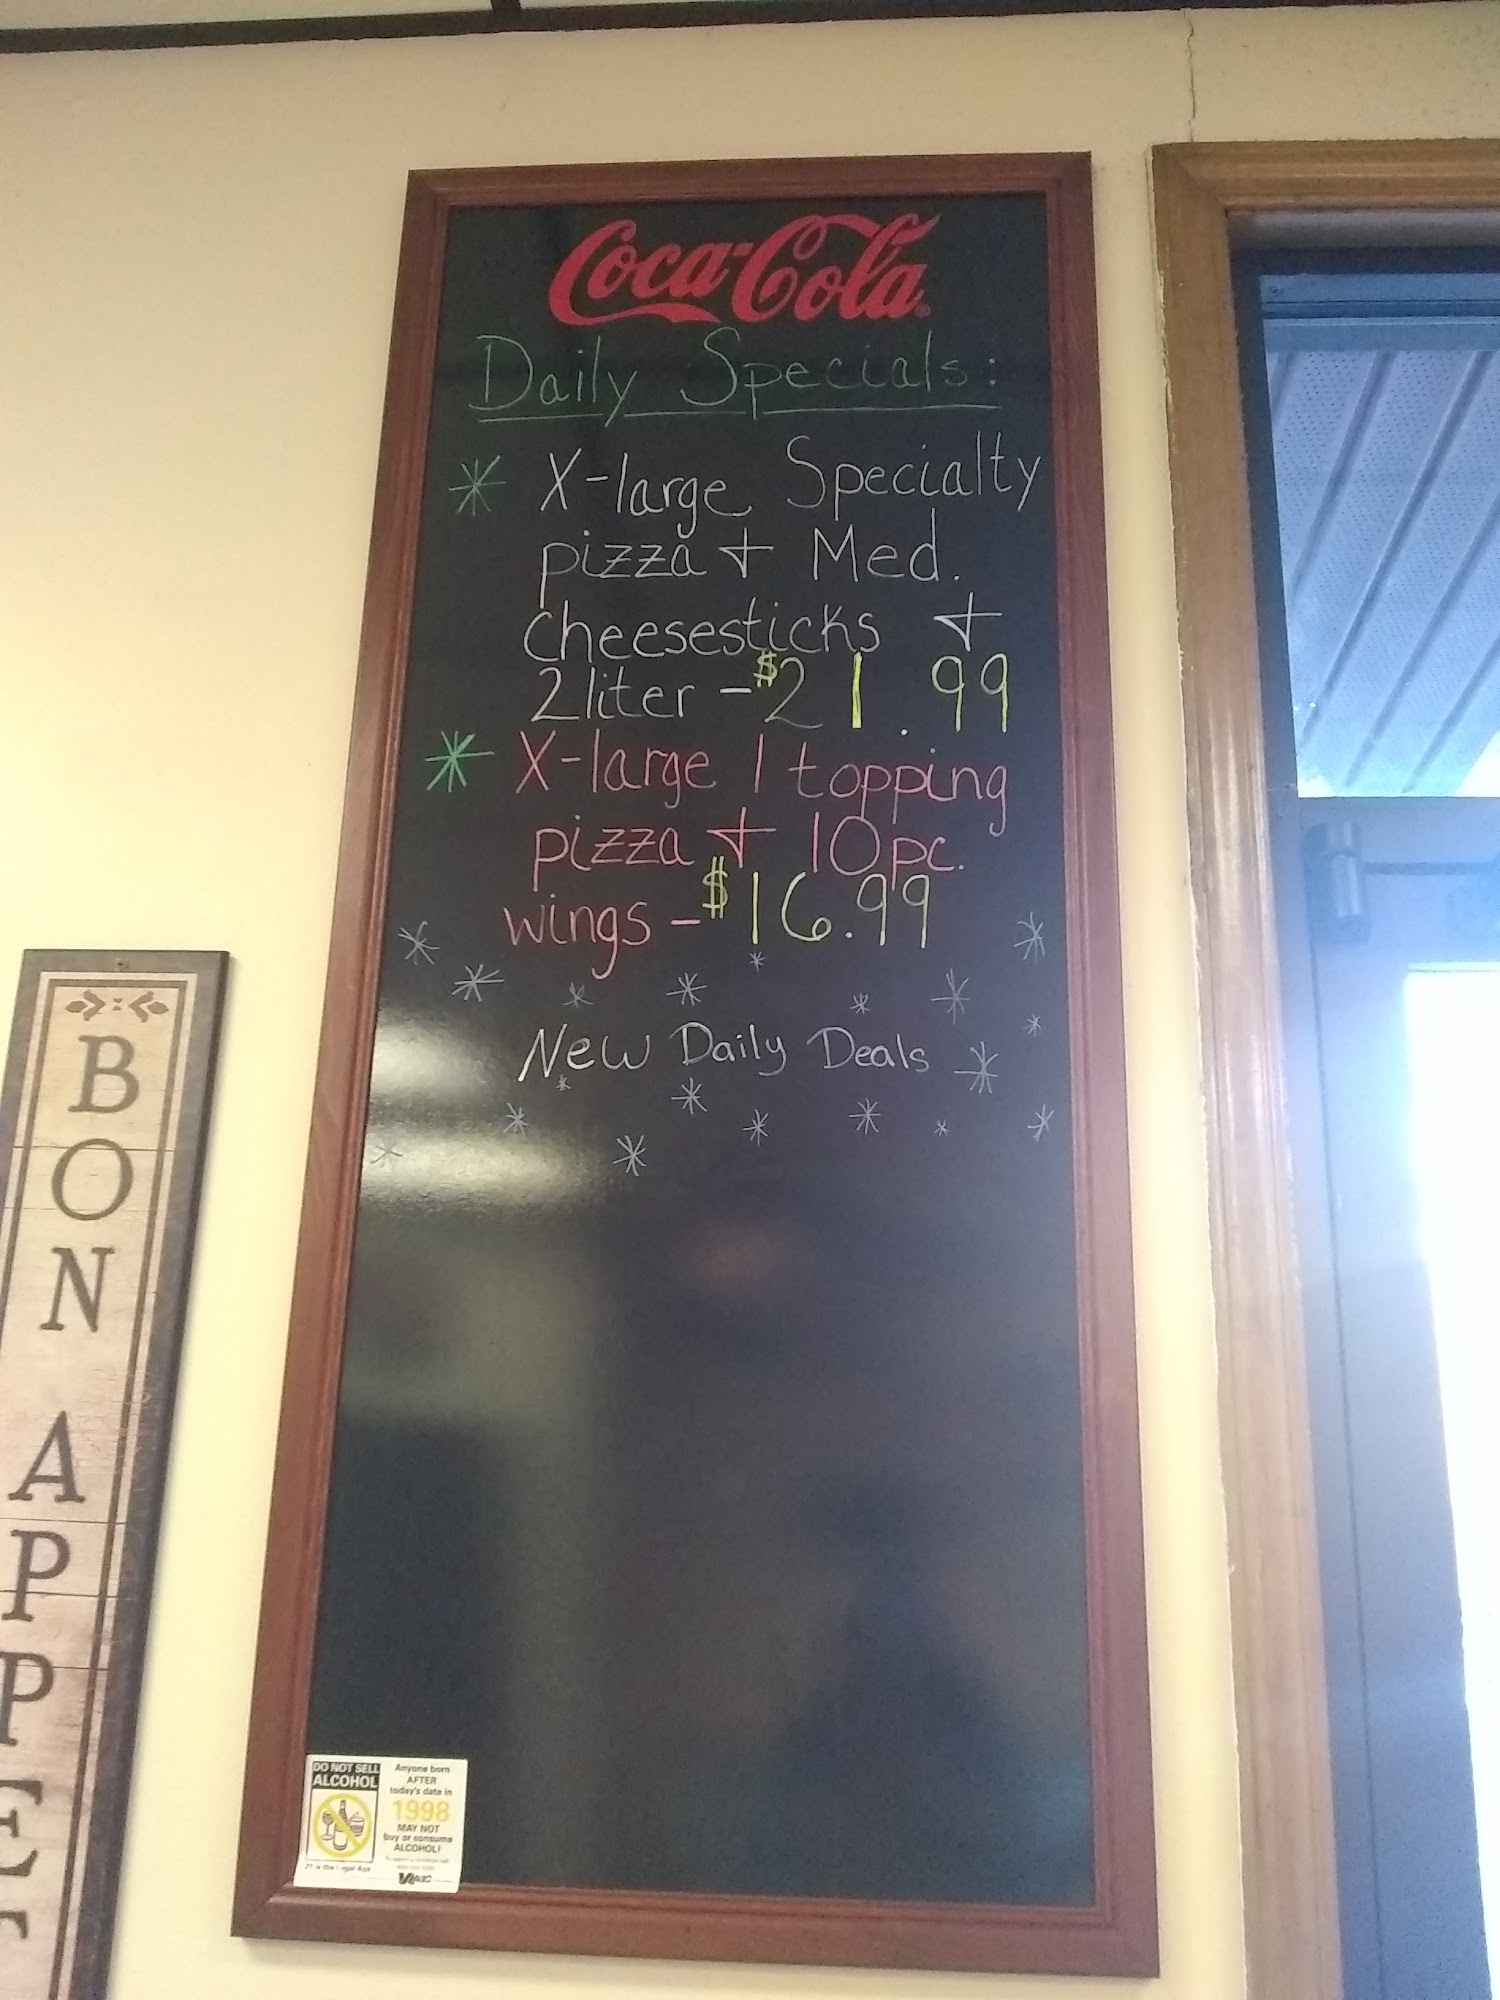 Coca-Cola
Daily Specials:
X-large Specialty
pizza + Med.
cheesesticks +
2 liter - $21.99
X-large 1 topping
pizza + 10pc.
wings - $16.99
New Daily Deals
BON APPE
DO NOT SELL
ALCOHOL
21 is the Legal Age
Anyone born
AFTER
today's date in
1998
MAY NOT
buy or consume
ALCOHOL!
ABC